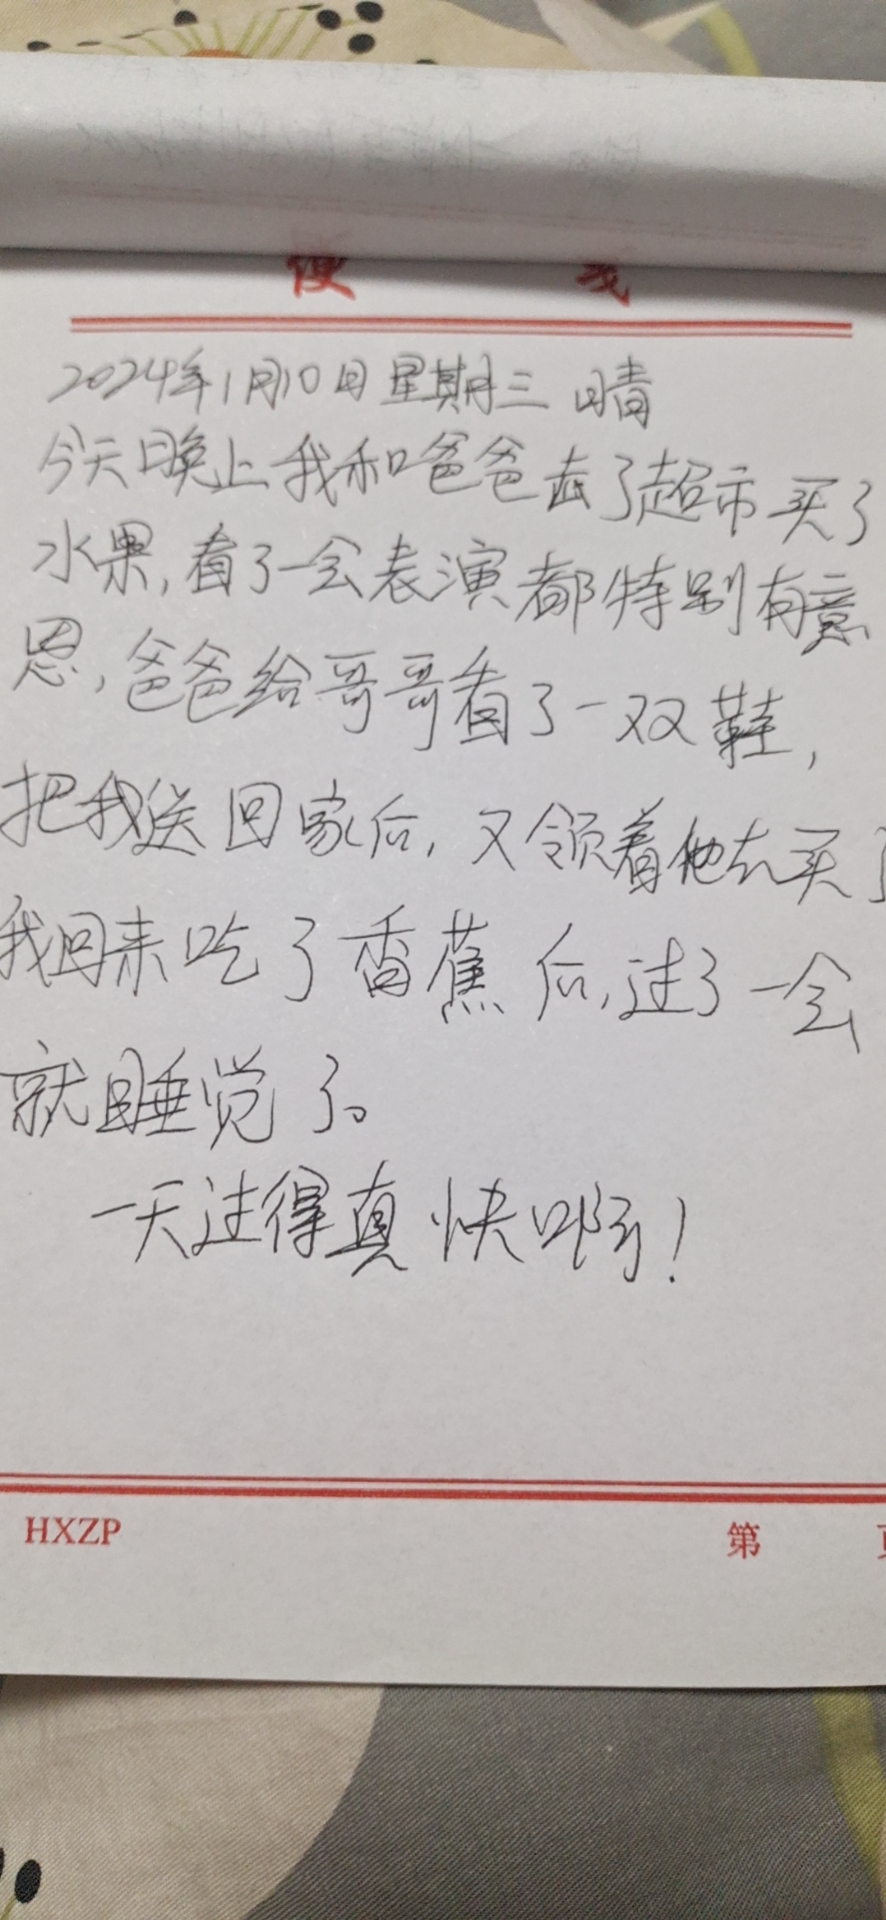 便 笺
2024年1月10日星期三 晴
今天晚上我和爸爸去了超市买了
水果,看了一会表演都特别有意
思,爸爸给哥哥看了一双鞋,
把我送回家后,又领着他去买了
我回来吃了香蕉后,过了一会
就睡觉了。
一天过得真快啊!
HXZP 第 页